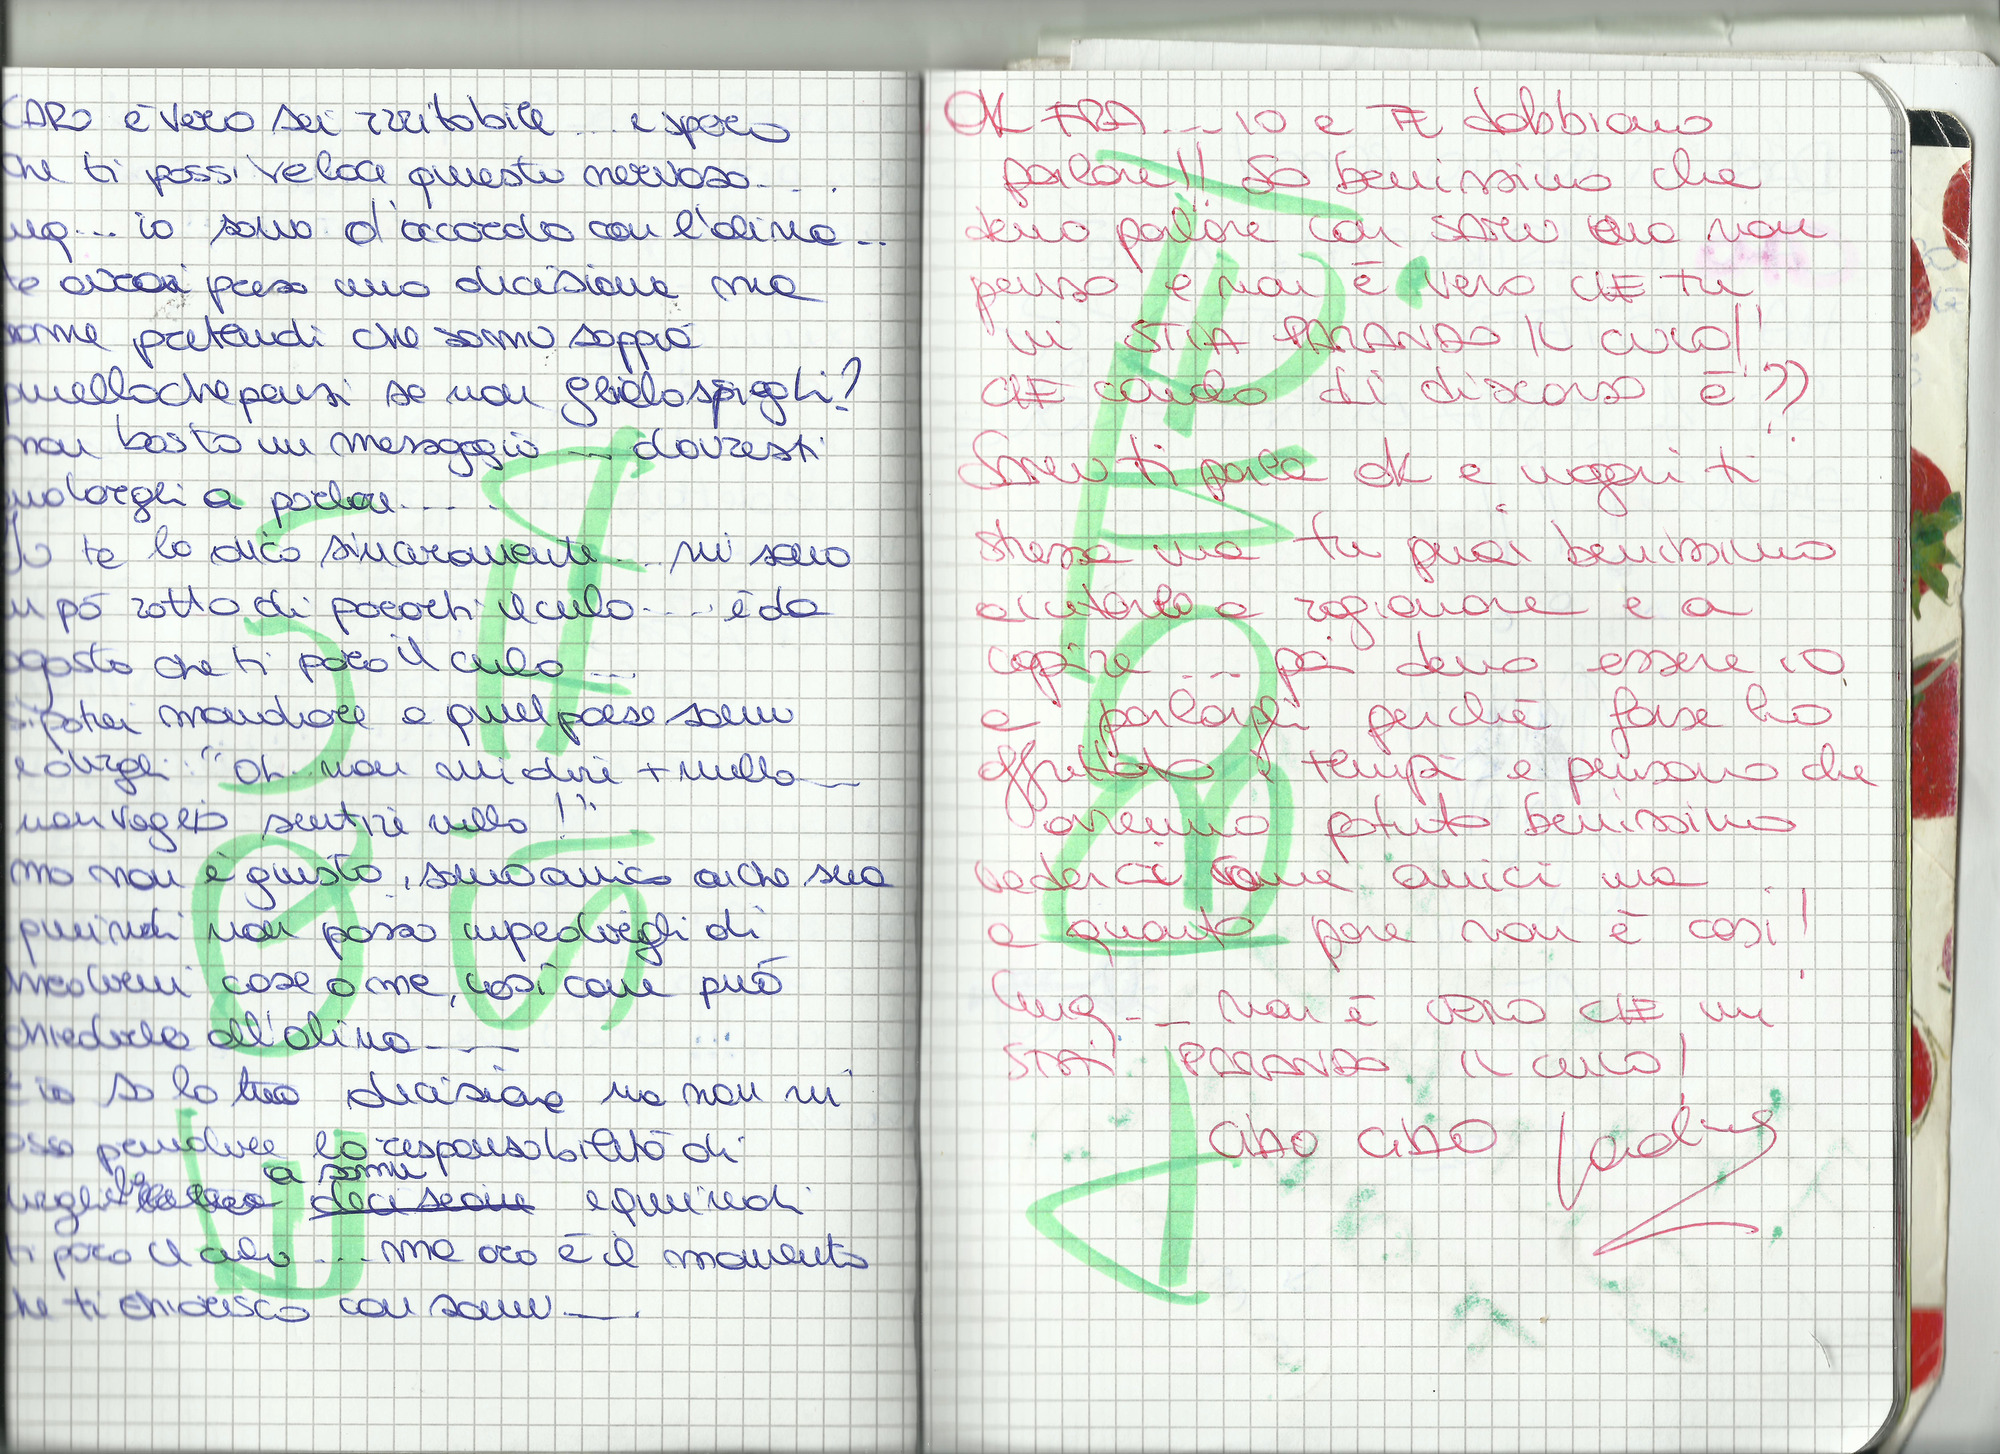 CARO è vero sei irritabile.... e spero
che ti passi veloce questo nervoso.....
ma... io sono d'accordo con l'alina...
te avrai preso una decisione ma
come pretendi che samu sappia
quello che pensi se non glielo spieghi?
non basta un messaggio .... dovresti
andargli a parlare.....
Io te lo dico sinceramente.... mi sono
un pò rotta di pararti il culo.... è da
agosto che ti paro il culo ....
potrei mandare a quel paese samu
e dirgli: "Oh non mi dire + nulla....
non voglio sentire nulla!".
ma non è giusto, sono amica anche sua
quindi non posso impedirgli di
chiedermi cose a me, così come può
chiederle all'alina......
E io so la tua decisione ma non mi
posso prendere la responsabilità di
a samu
e quindi
ti paro il culo .... ma ora è il momento
che ti chiarisca con samu.....
OK FRA.... IO e TE dobbiamo
parlare!! So benissimo che
devo parlare con SAMU ma non
penso e non è vero CHE tu
mi STIA PARANDO IL CULO!!
CHE cavolo di discorso è??
Samu ti parla ok e magari ti
stressa ma tu puoi benissimo
aiutarlo a ragionare e a
capire .... poi devo essere io
a parlargli perchè forse ho
affrettato i tempi e pensavo che
avremmo potuto benissimo
vederci come amici ma
a quanto pare non è così!
Cmq.... non è VERO CHE mi
STAI PARANDO IL CULO!
CIAO CIAO